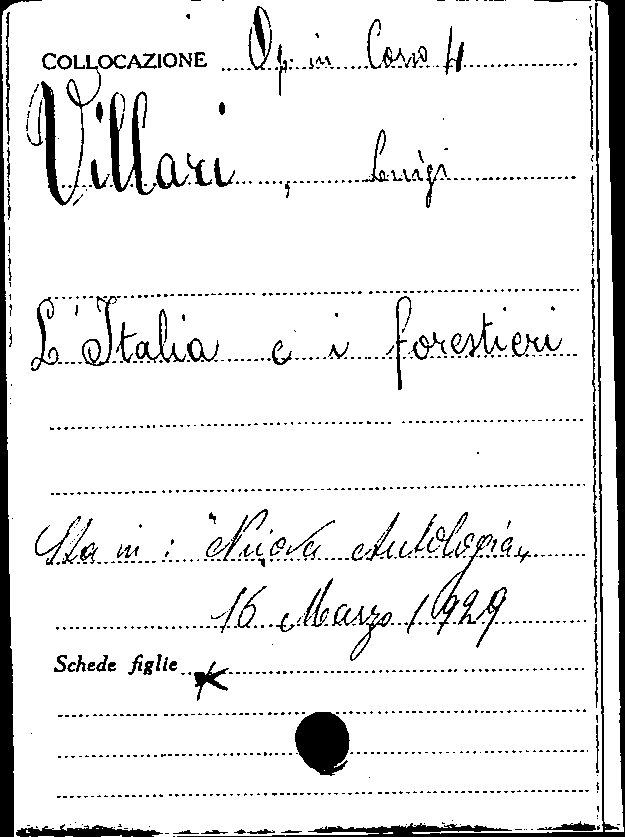 COLLOCAZIONE Op. in Corso 4
Villari, Luigi
L'Italia e i forestieri
Sta in: "Nuova Antologia„
16 Marzo 1929
Schede figlie